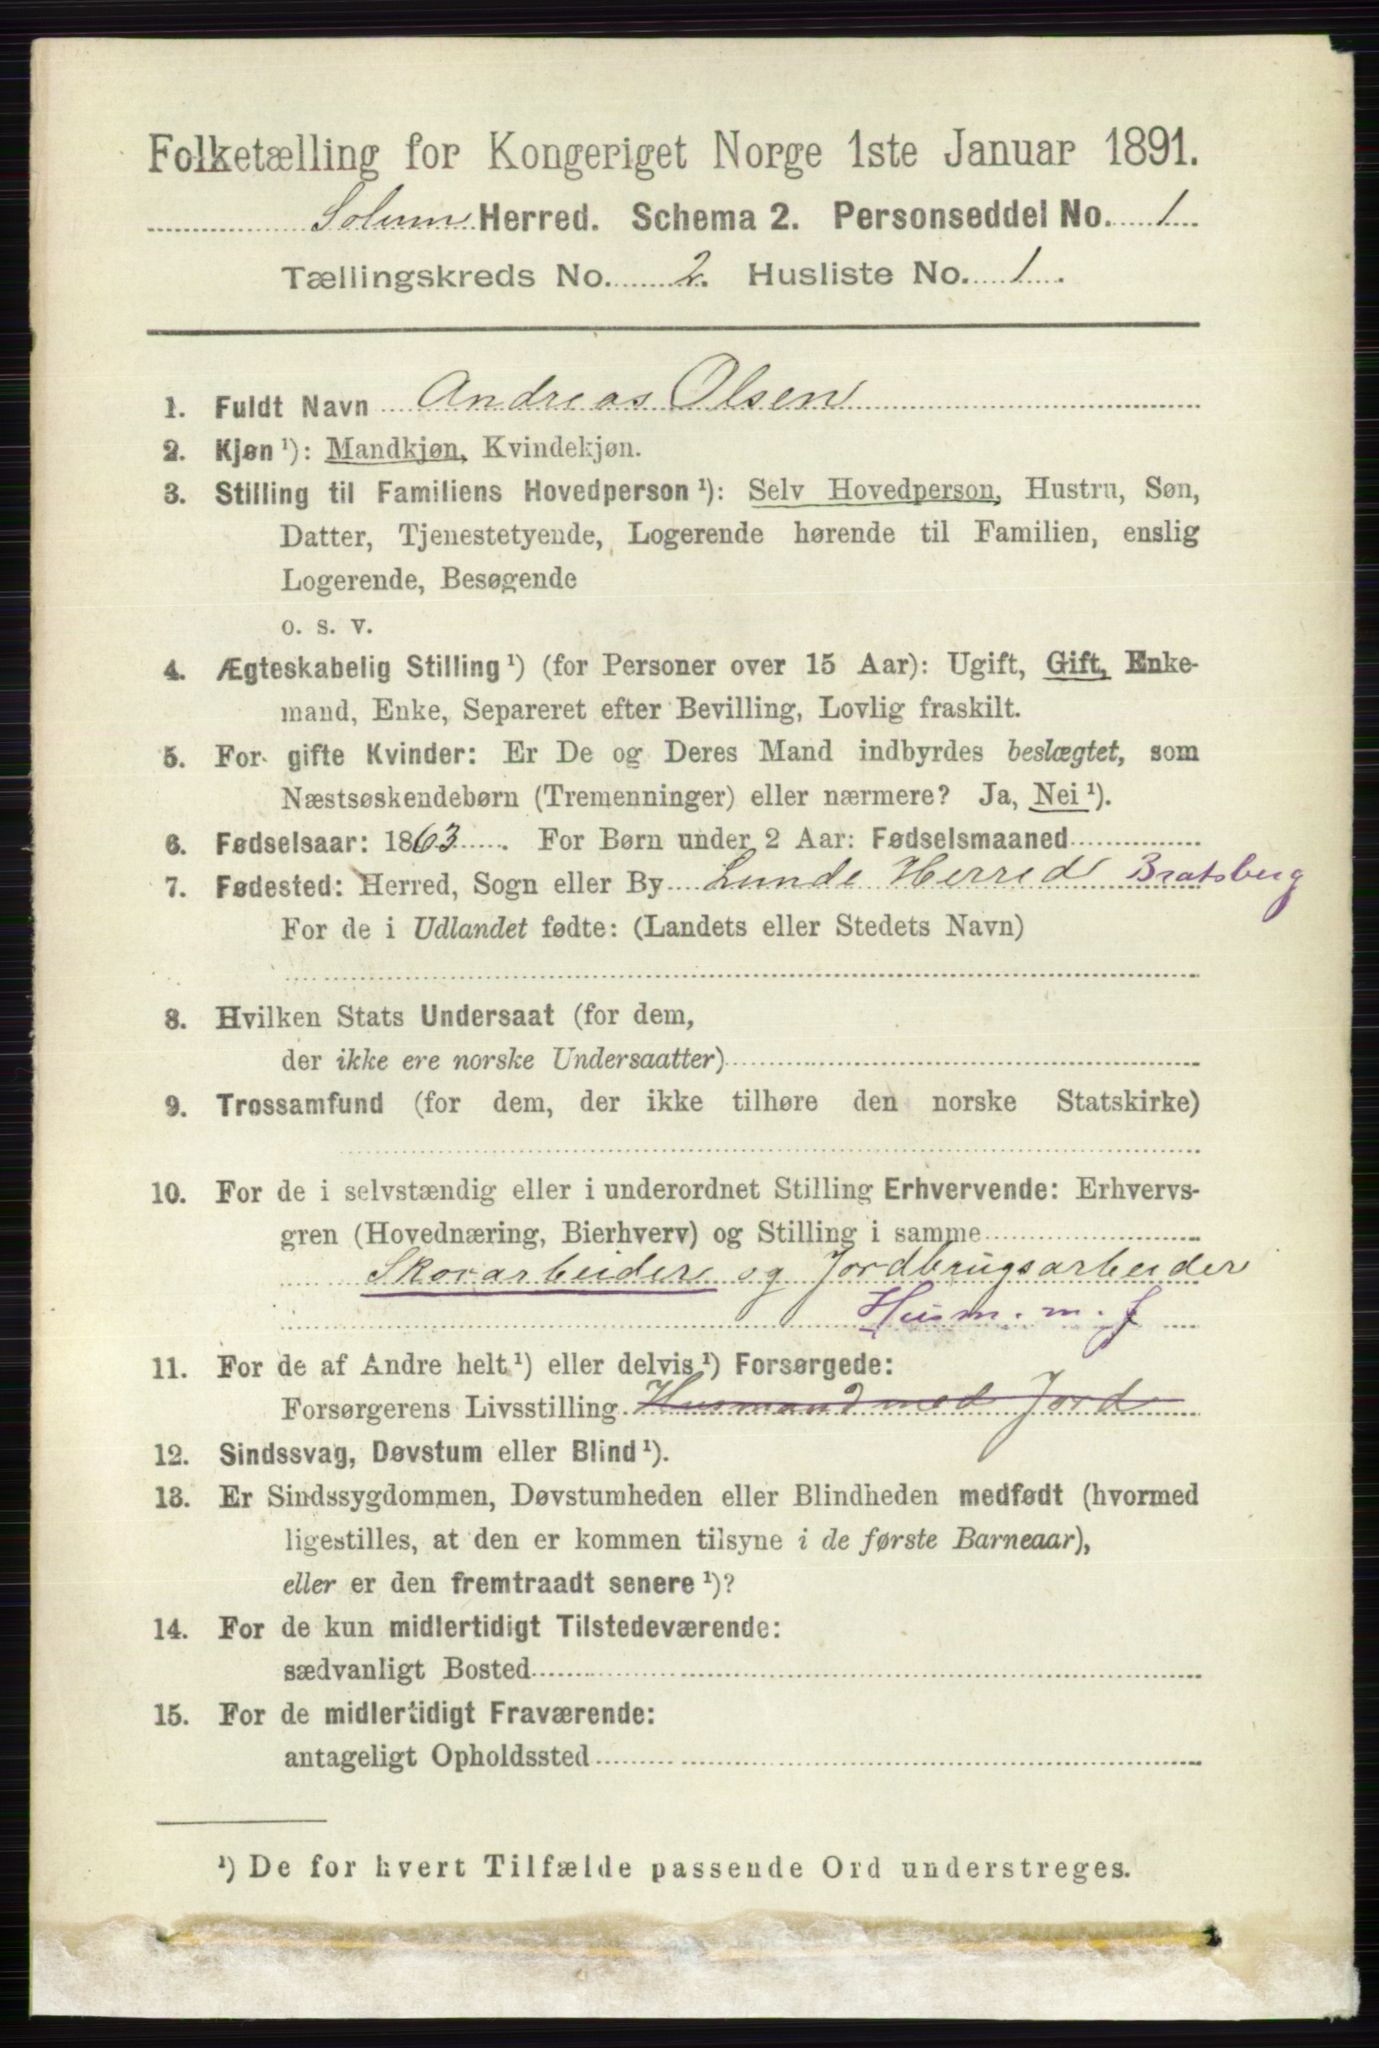 Folketælling for Kongeriget Norge 1ste Januar 1891.
Solum Herred. Schema 2. Personseddel No. 1
Tællingskreds No. 2. Husliste No. 1.
1. Fuldt Navn Andreas Olsen
2. Kjøn¹): Mandkjøn, Kvindekjøn.
3. Stilling til Familiens Hovedperson¹): Selv Hovedperson, Hustru, Søn,
Datter, Tjenestetyende, Logerende hørende til Familien, enslig
Logerende, Besøgende
o. s. v.
4. Ægteskabelig Stilling¹) (for Personer over 15 Aar): Ugift, Gift, Enke-
mand, Enke, Separeret efter Bevilling, Lovlig fraskilt.
5. For gifte Kvinder: Er De og Deres Mand indbyrdes beslægtet, som
Næstsøskendebørn (Tremenninger) eller nærmere? Ja, Nei¹).
6. Fødselsaar: 1863. For Børn under 2 Aar: Fødselsmaaned
7. Fødested: Herred, Sogn eller By Lunde Herred Bratsberg
For de i Udlandet fødte: (Landets eller Stedets Navn)
8. Hvilken Stats Undersaat (for dem,
der ikke ere norske Undersaatter)
9. Trossamfund (for dem, der ikke tilhøre den norske Statskirke)
10. For de i selvstændig eller i underordnet Stilling Erhvervende: Erhvervs-
gren (Hovednæring, Bierhverv) og Stilling i samme
Skovarbeider og Jordbrugsarbeider
Husm. m. j
11. For de af Andre helt¹) eller delvis¹) Forsørgede:
Forsørgerens Livsstilling Husmand med Jord
12. Sindssvag, Døvstum eller Blind¹).
13. Er Sindssygdommen, Døvstumheden eller Blindheden medfødt (hvormed
ligestilles, at den er kommen tilsyne i de første Barneaar),
eller er den fremtraadt senere¹)?
14. For de kun midlertidigt Tilstedeværende:
sædvanligt Bosted
15. For de midlertidigt Fraværende:
antageligt Opholdssted
¹) De for hvert Tilfælde passende Ord understreges.